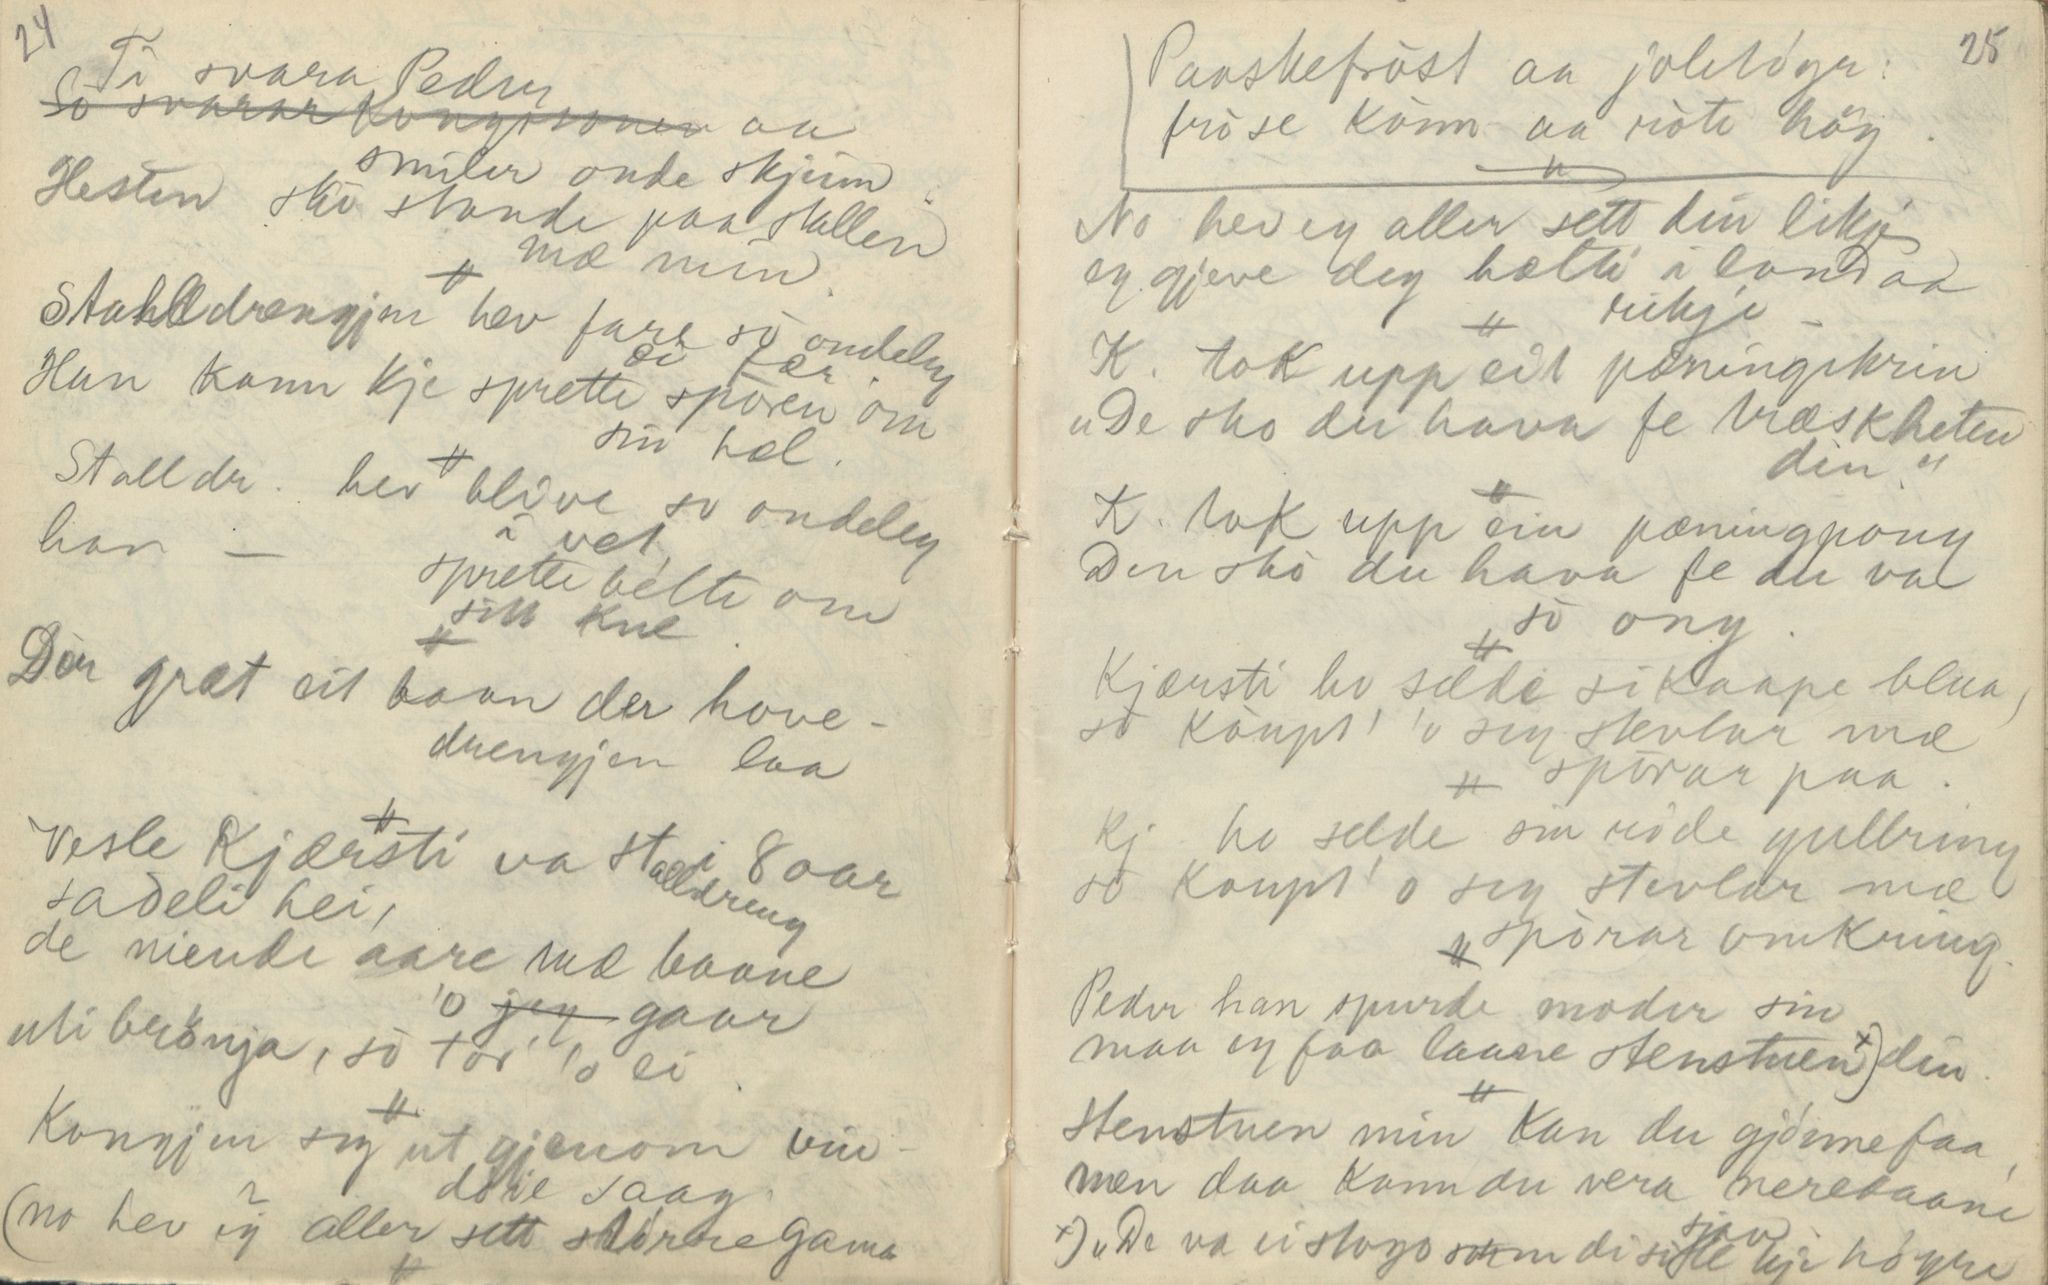 24
Ti svara Peder
So svarar Kongssonen aa
smiler onde skjein
Hesten sko stande paa stallen
mæ min.
Stalldrengjen hev fare so ondeleg
ei fær.
Han kann kje sprette sporen om
sin hæl.
Stalldr. hev blive so ondeleg
i vet,
han —
sprette belte om
sitt kne.
Dær græt eit baan der hove-
drengjen laa
Vesle Kjærsti va stalldreng i 8 aar
sadeli hei,
de niende aare mæ baane
'o jeg gaar
uti brönja, so tor 'o ei.
Kongjen seg ut gjenom vin-
döre saag.
(no hev eg aller sett större gama
25
Paaskefröst aa jolelögr:
fröse könn aa röte höy.
No hev eg aller sett din likje
eg gjeve deg hælti i land aa
rikje —
K. tok upp eit pæningskrin
"De sko du hava fe træskheten
din."
K. tok upp ein pæningpong
Den sko du hava fe du va
so ong.
Kjærsti ho sælde si kaape blaa,
so kaupt' 'o seg stevlar mæ
sporar paa.
Kj. ho selde sin röde gullring
so kaupt' 'o seg stevlar mæ
sporar omkring.
Peder han spurde moder sin
maa eg faa laane stenstuen x) din.
Stenstuen min kan du gjönne faa,
men daa kann du vera mæ baane
x) "De va ei stogo som di sille sjaa kje högre